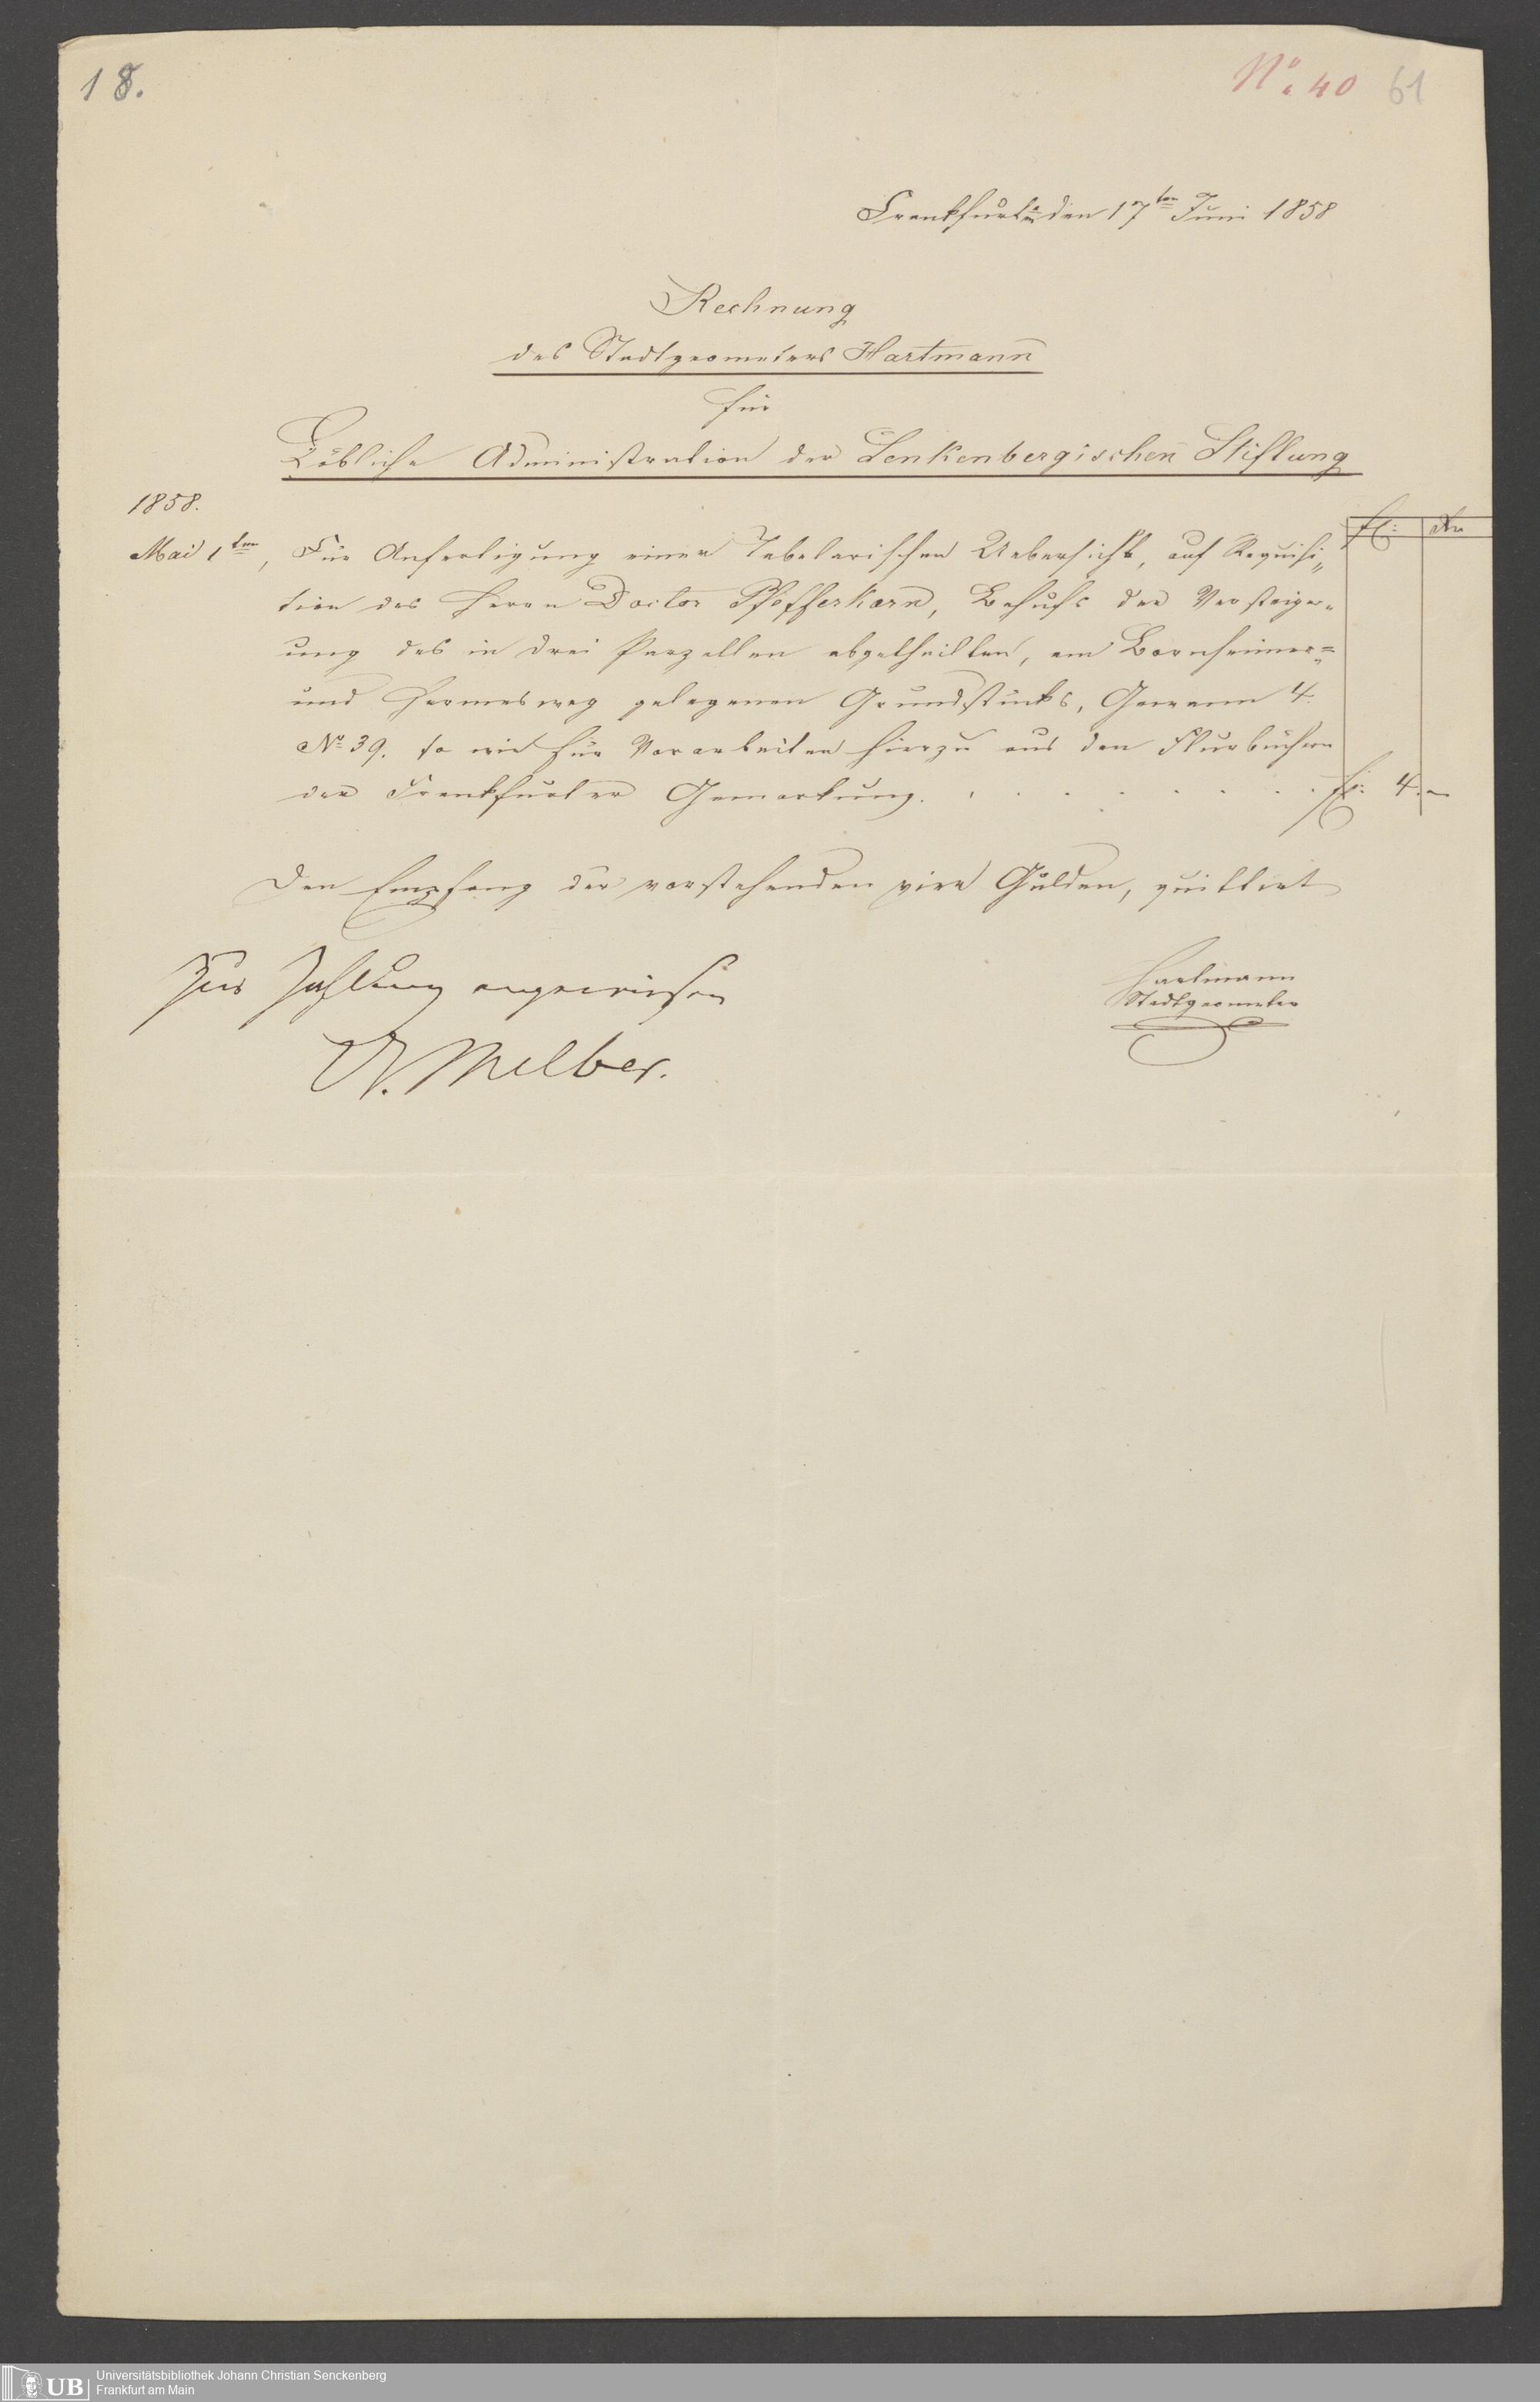 18.
No. 40 61
Frankfurt a/m den 17ten Juni 1858
Rechnung
des Stadtgeometers Hartmann
für
Löbliche Administration der Senkenbergischen Stiftung
1858.
fl: Kr
Mai 1ten, Für Anfertigung einer Tabelarischen Uebersicht, auf Requisi„
tion des Herrn Doctor Pfefferkorn, Behufs der Versteiger„
ung des in drei Parzellen abgetheilten, am Bornheimer=
und Hermesweg gelegenen Grundstücks, Gewann 4.
No 39. so wie für Vorarbeiten hierzu aus den Flurbüchern
der Frankfurter Gemarkung. . . . . . . . . fl: 4.–
Den Empfang der vorstehenden vier Gulden, quittirt
Zur Zahlung angewiesen
Hartmann
Stadtgeometer
Dr. Melber.
UB
Universitätsbibliothek Johann Christian Senckenberg
Frankfurt am Main